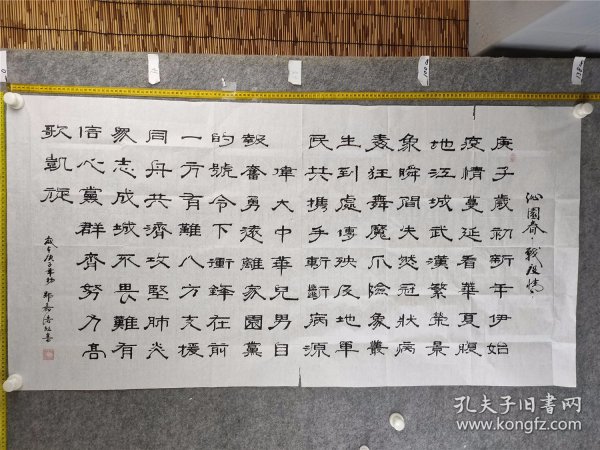 沁園春 戰疫情
庚子歲初新年伊始
疫情蔓延看華夏腹
地江城武漢繁榮景
象瞬間失然冠狀病
毒狂舞魔爪險象叢
生到處傳殃及地軍
民共攜手斬斷病源
偉大中華兒男自
毅奮勇遠離家園黨
的號令下衝鋒在前
一方有難八方支援
同舟共濟攻堅肺炎
眾志成城不畏難有
信心黨群齊努力高
歌凱旋
歲在庚子年初
孔夫子旧书网
www.kongfz.com